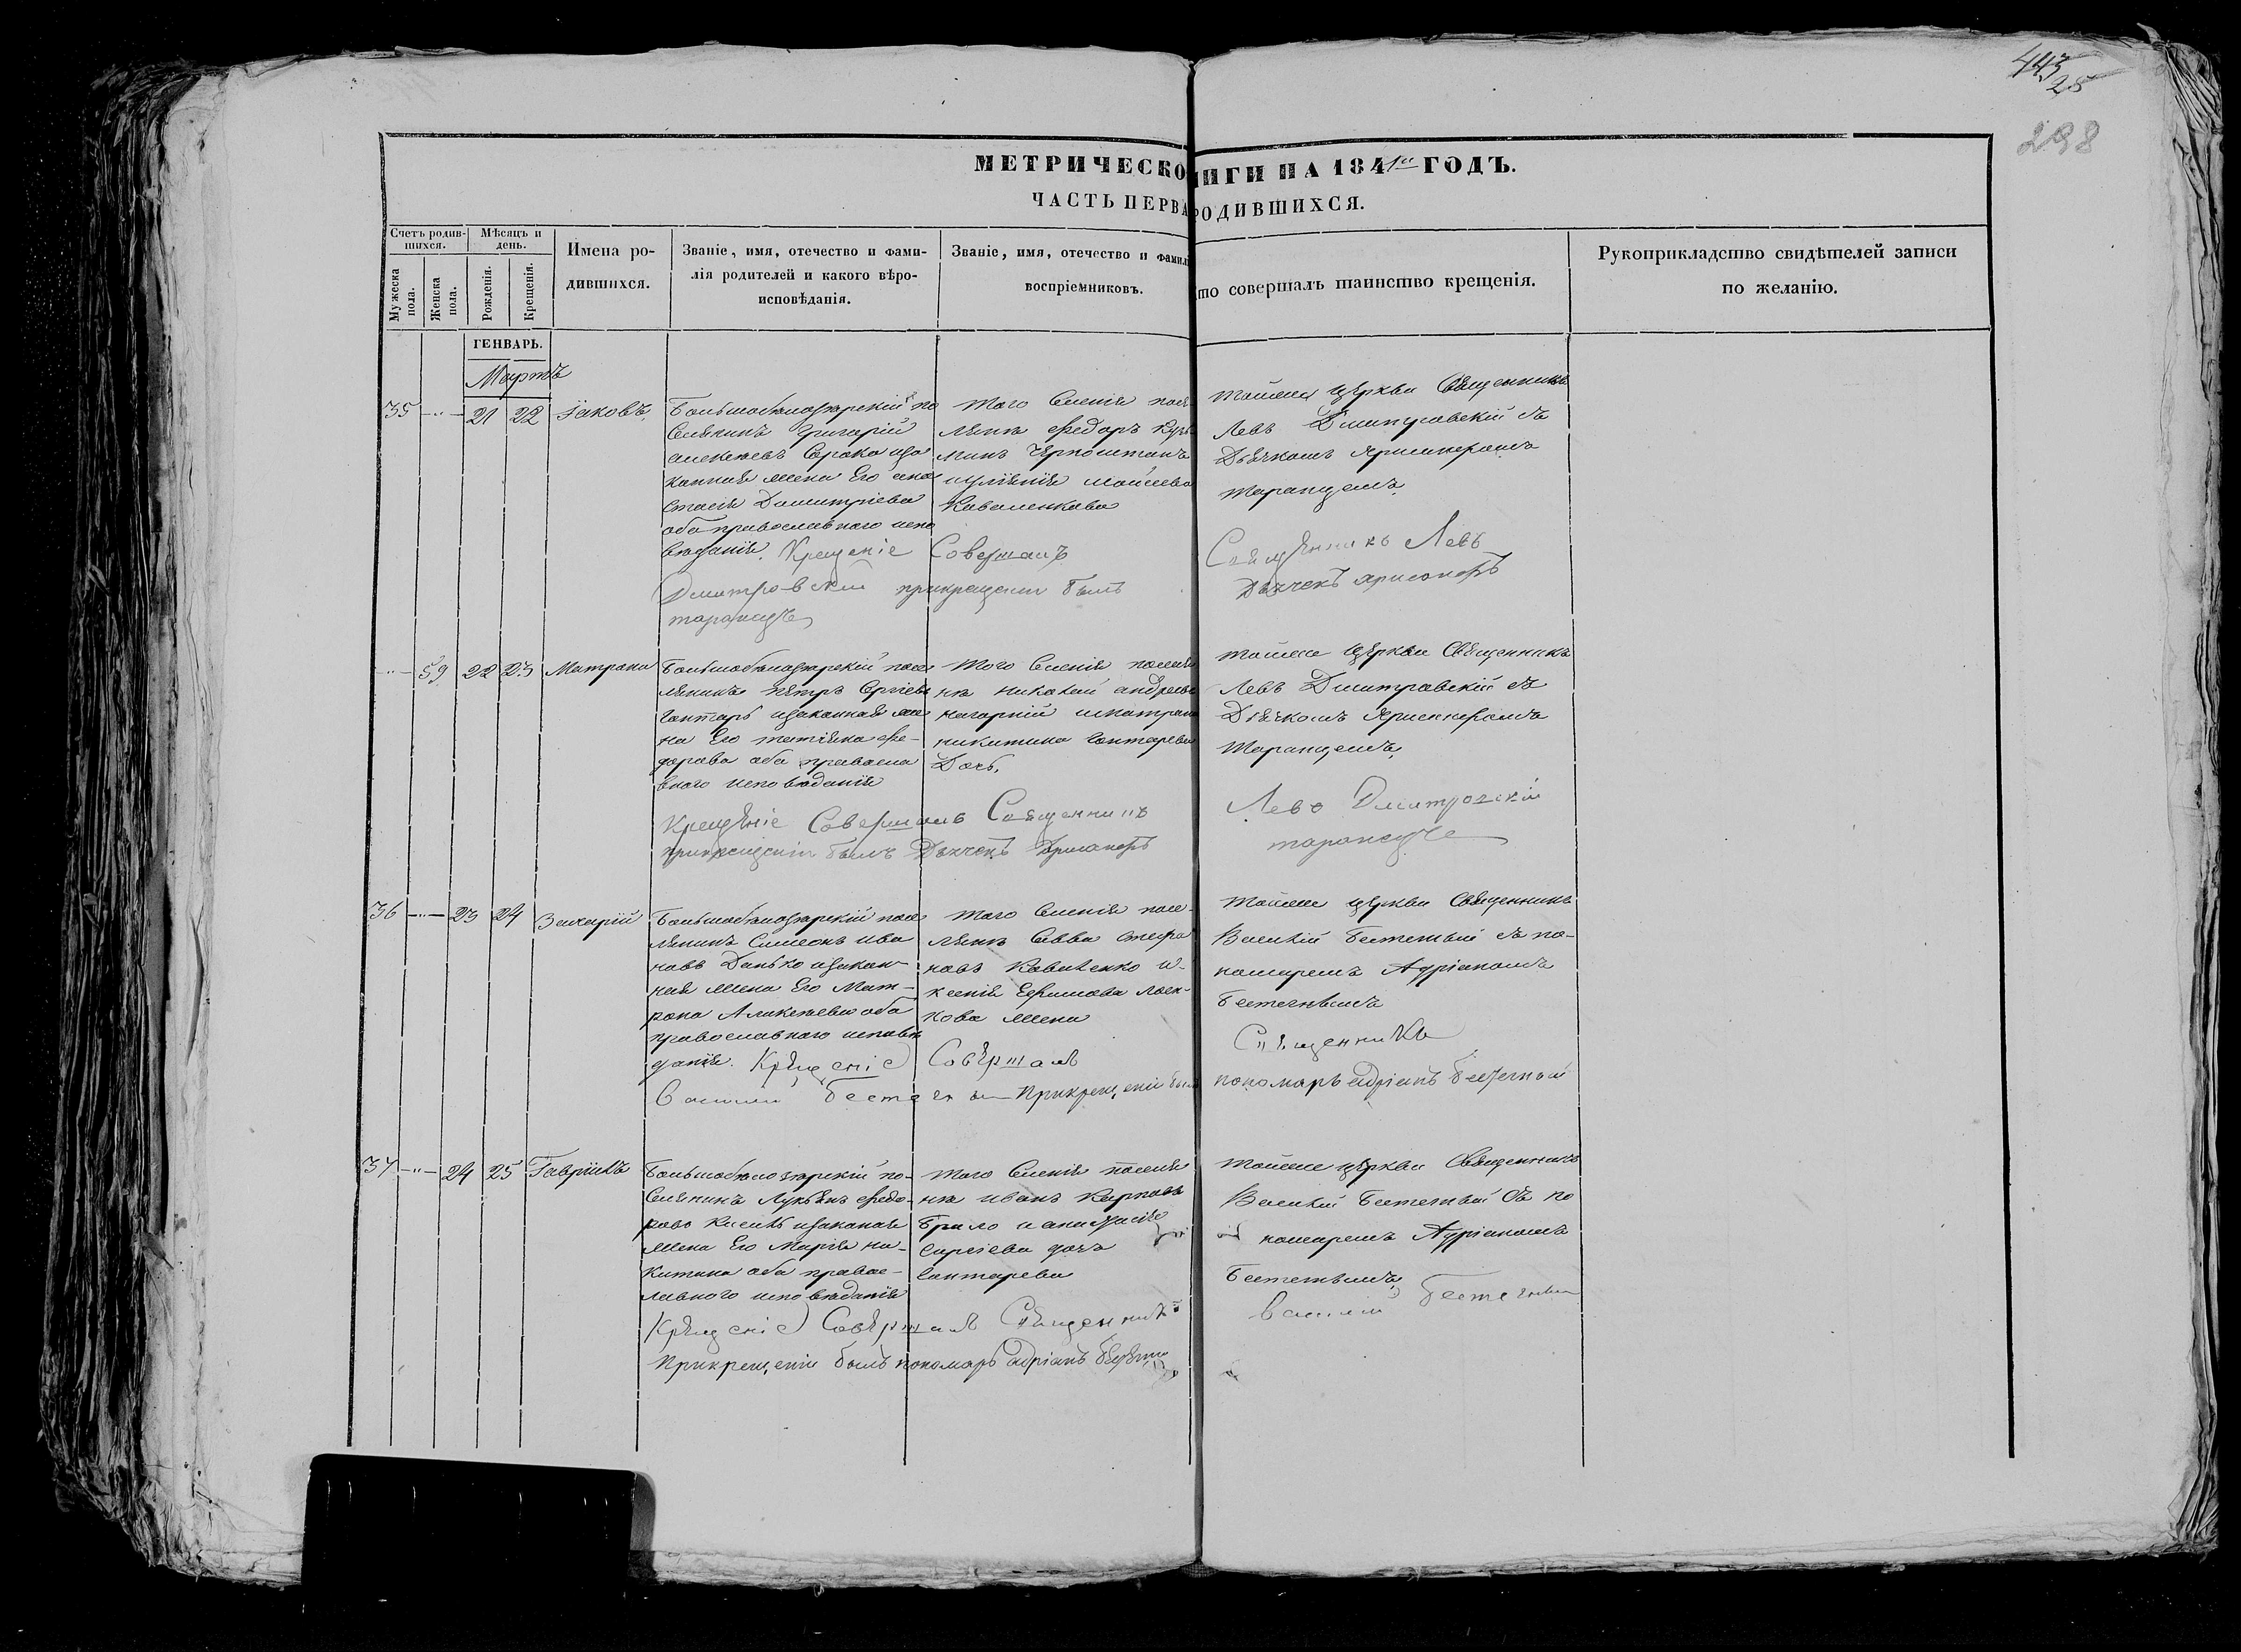 443
25
298
МЕТРИЧЕСКО ИГИ НА 1841й ГОДЪ.
ЧАСТЬ ПЕРВА РОДИВШИХСЯ.
Счетъ родив-
шихся.
Мужеска
пола.
Женска
пола.
Мѣсяцъ и
день.
Рожденія.
Крещенія.
Имена ро-
дившихся.
Званіе, имя, отечество и фами-
лія родителей и какого вѣро-
исповѣданія.
Званіе, имя, отечество и фамил
воспріемниковъ.
то совершалъ таинство крещенія.
Рукоприкладство свидѣтелей записи
по желанію.
ГЕНВАРЬ.
Мартъ
35 - " - 21 22 Іаковъ
по
селянинъ Григорій
Сорока и зако
конная жена Его ана
стасія Димитріева
оба православнаго испо
веданія. Крещеніе
Дмитровский
таранецъ
Того Селенія посе
лянинъ Федоръ Кузь
минъ
Коваленкова
Совершалъ
прикрещеніи былъ
Тойже Церкви Священникъ
Левъ Димитровскій съ
Дьячкомъ
Таранцемъ.
Священникъ Левъ
Дьячекъ
- " - 59 22 23 Матрона
посе
лянинъ Петръ Сргіевъ
Гонтарь и законная же
на Его татіяна Фе-
дорова оба правосла
внаго исповеданія
Крещеніе Совершалъ Священникъ
прикрещеніи былъ Дьячекъ
Того Селенія поселя
нъ Николай андреевъ
нагорній и матрона
никитина Гонтарева
Дочь.
Тойже Церкви Священникъ
Левъ Дмитровскій съ
Дьячкомъ
Таранцемъ.
Левъ Дмитровскій
таранецъ
36 - " - 23 24 Захарій
посе
лянинъ Симеонъ ива
новъ Данько и закон
ная жена Его Мат-
рона Алексеева оба
православнаго исповѣ
данія. Крещеніе
Василий
Того Селенія посе-
лянъ Савва Стефа
новъ Коваленко и
ксенія Ефимова
кова жена
Совершалъ
Прикрещеніи былъ
Тойже церкви Священникъ
Василій съ по-
номаремъ Адріаномъ
Священникъ
пономарь адріанъ
37 - " - 24 25 Гавріилъ
по-
селянинъ Лукьянъ Федо-
ровъ и законая
жена Его Марія ни-
китина оба правос-
лавного исповѣданія
Крещеніе Совершалъ Священникъ
Прикрещеніи былъ пономарь адріанъ
Того Селенія поселя
нъ иванъ Карповъ
Брило и анастасія
Сергіева дочь
Гонтарева
Тойже церкви Священникъ
Василій съ по
номаремъ Адріаномъ
Василій